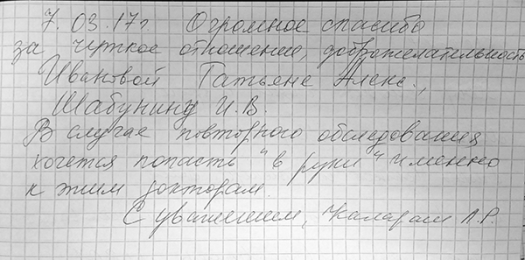 7.03.17г. Огромное спасибо
за чуткое отношение, доброжелательность
Ивановой Татьяне Алекс.,
Шабунину И.В.
В случае повторного обследования
хочется попасть "в руки" именно
к этим докторам.
С уважением, Л.Р.